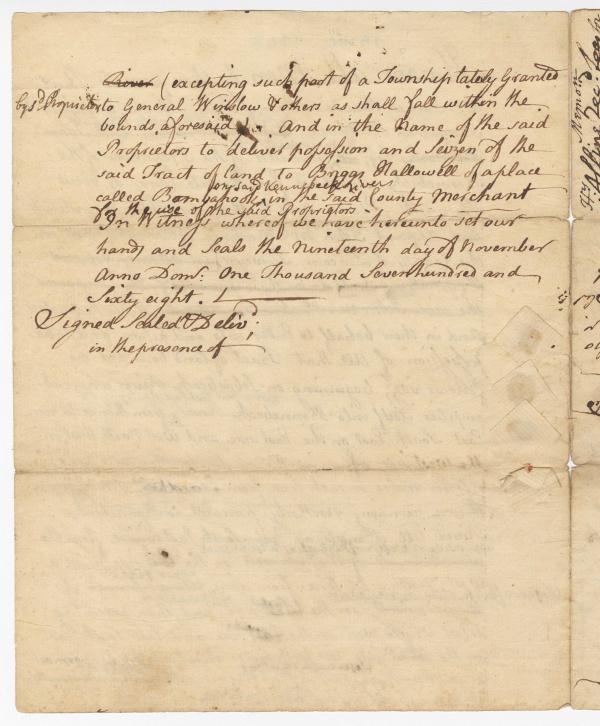 River (excepting such part of a Township lately Granted
by sd. Proprietors to General Winslow & others as shall fall within the
bounds aforesaid). And in the Name of the said
Proprietors to deliver possession and Seizen of the
said Tract of land to Briggs Hallowell of a place
on said Kennebeck River
called Bombahook, in the said County Merchant
for the use of the said Proprietors
In Witness whereof we have hereunto set our
hands and Seals the Nineteenth day of November
Anno Dom: One Thousand Seven hundred and
Sixty eight.
Signed Sealed & Delivd:
in the presence of